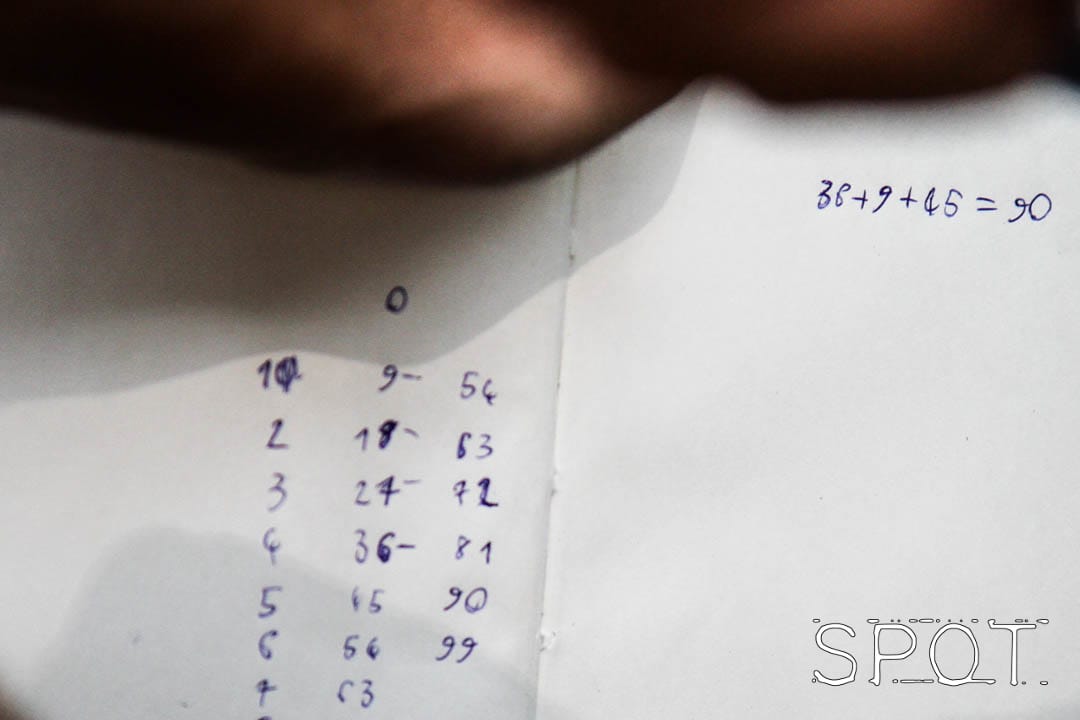 36+9+45=90
0
10 9- 54
2 18- 63
3 27- 72
4 36- 81
5 45 90
6 54 99
7 63
SPOT